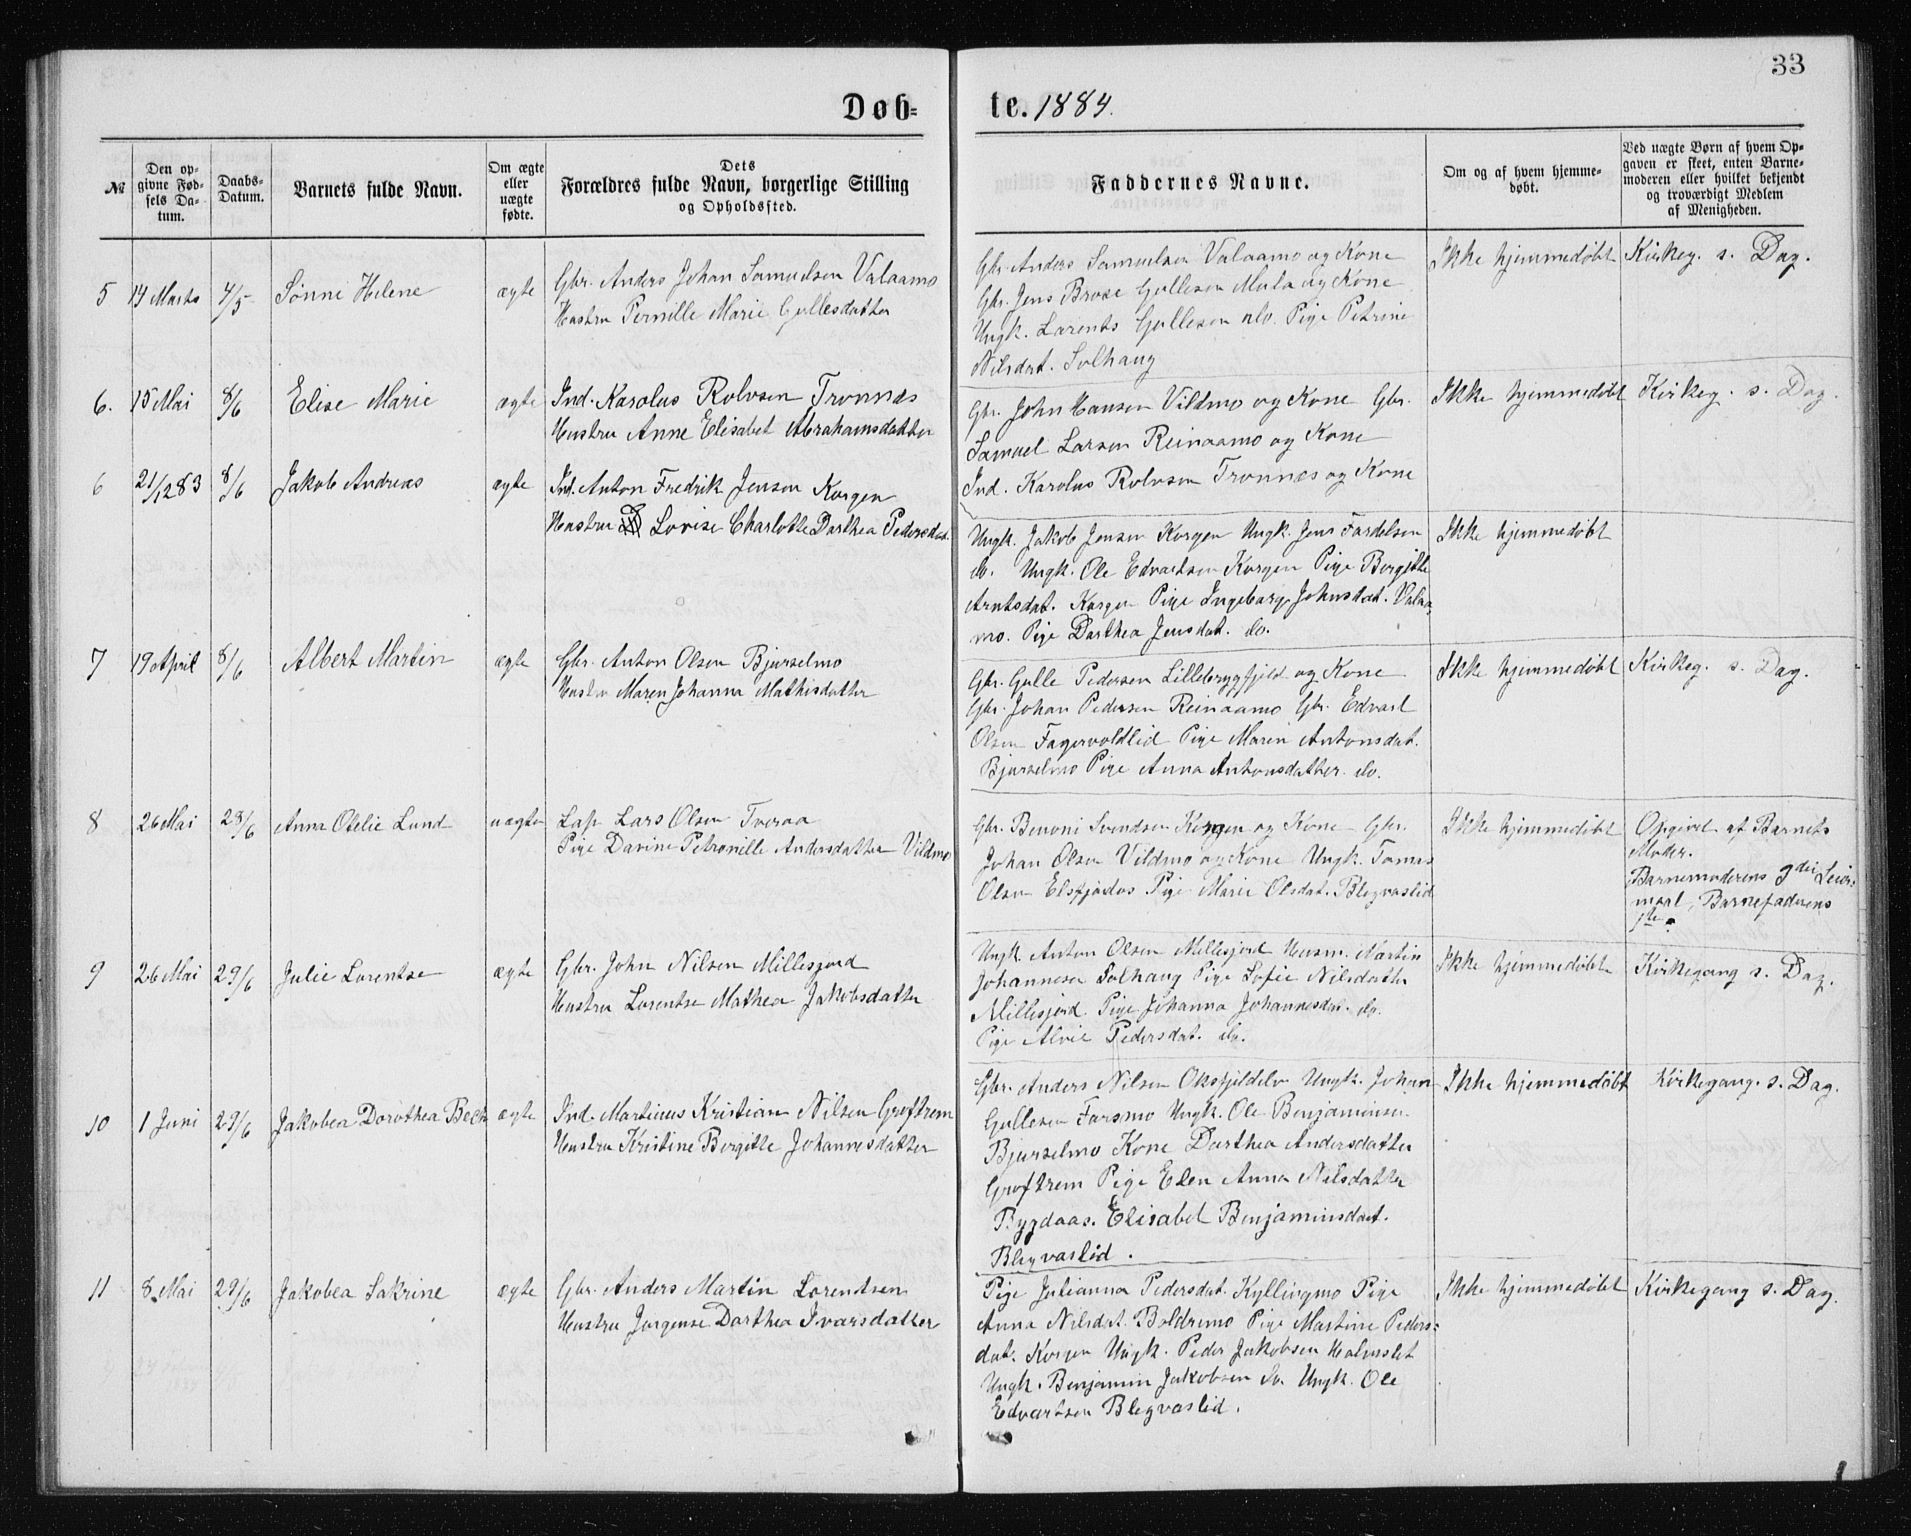 33
Døb-
te. 1884.
№
Den op-
givne Fød-
sels Da-
tum.
Daabs-
Datum.
Barnets fulde Navn.
Om ægte
eller
uægte
fødte.
Dets
Forældres fulde Navn, borgerlige Stilling
og Opholdssted.
Faddernes Navne.
Om og af hvem hjemme-
døbt.
Ved uægte Børn af hvem Op-
gaven er skeet, enten Barne-
moderen eller hvilket bekjendt
og troværdigt Medlem
af Menigheden.
5
14 Marts
4/5
Sønni Helene
ægte
Gbr. Anders Johan Samuelsen Valaamo
Hustru Pernille Marie Gullesdatter
Gbr. Anders Samuelsen Valaamo og Kone
Gbr. Jens Brose Gullesen Mula og Kone
Ungk. Lorents Gullesen do. Pige Petrine
Nilsdat. Solhaug
Ikke hjemmedøbt
Kirkeg. s. Dag.
6.
15 Mai
8/6
Elise Marie
ægte
Ind. Karolus Rolvsen Tronnæs
Hustru Anne Elisabet Abrahamsdatter
Gbr. John Hansen Vildmo og Kone Gbr.
Samuel Larsen Reinaamo og Kone
Ind. Karolus Rolvsen Tronnæs og Kone
Ikke hjemmedøbt
Kirkeg. s. Dag.
6
21/12 83
8/6
Jakob Andreas
ægte
Ind. Anton Fredrik Jensen Korgen
Hustru Lovise Charlotte Darthea Pedersdat.
Ungk. Jakob Jensen Korgen Ungk. Jens Fardelsen
do. Ungk. Ole Edvartsen Korgen Pige Bergitte
Arntsdat. Korgen Pige Ingeborg Johnsdat. Valaa-
mo. Pige Darthea Jensdat. do.
Ikke hjemmedøbt
7
19 April
8/6
Albert Martin
ægte
Gbr. Anton Olsen Bjurselmo
Hustru Maren Johanna Mathisdatter
Gbr. Gulle Pedersen Lillebrygfjeld og Kone
Gbr. Johan Pedersen Reinaamo Gbr. Edvard
Olsen Fagervoldlid Pige Maren Antonsdat.
Bjurselmo Pige Anna Antonsdatter do.
Ikke hjemmedøbt
Kirkeg. s. Dag.
8
26 Mai
29/6
Anna Otelie Lund
uægte
Lap Lars Olsen Tveraa
Pige Davine Petronille Andersdatter Vildmo
Gbr. Benoni Svendsen Korgen og Kone Gbr.
Johan Olsen Vildmo og Kone Ungk. Tomas
Olsen Elsfjordos Pige Marie Olsdat. Blegvaslid
Ikke hjemmedøbt
Opgivet af Barnets
Moder.
Barnemoderens 3die Leier-
maal, Barnefaderens
1ste.
9
26 Mai
29/6
Julie Lorentse
ægte
Gbr. John Nilsen Millesjord
Hustru Lorentse Mathea Jakobsdatter
Ungk. Anton Olsen Millesjord Husm. Martin
Johannesen Solhaug Pige Sofie Nilsdatter
Millesjord Pige Johanna Johannesdat. do.
Pige Alvie Pedersdat. do.
Ikke hjemmedøbt
Kirkegang s. Dag.
10
1 Juni
29/6
Jakobea Dorothea Beck
ægte
Ind. Martinus Kristian Nilsen Groftrem
Hustru Kristine Bergitte Johannesdatter
Gbr. Anders Nilsen Oksfjeldelv Ungk. Johan
Gullesen Farsmo Ungk. Ole Benjaminsen
Bjurselmo Kone Darthea Andersdatter
Groftrem Pige Elen Anna Nilsdatter
Bygdaas. Elisabet Benjaminsdat.
Blegvaslid.
Ikke hjemmedøbt
Kirkegang. s. Dag.
11
8 Mai
29/6
Jakobea Sakrine
ægte
Gbr. Anders Martin Lorentsen
Hustru Jørgense Darthea Ivarsdatter
Pige Julianna Pedersdat. Kyllingmo Pige
Anna Nilsdat. Boldremo Pige Martine Peders-
dat. Korgen Ungk. Peder Jakobsen Holmslet
Ungk. Benjamin Jakobsen do. Ungk. Ole
Edvartsen Blegvaslid.
Ikke hjemmedøbt
Kirkegang s. Dag.